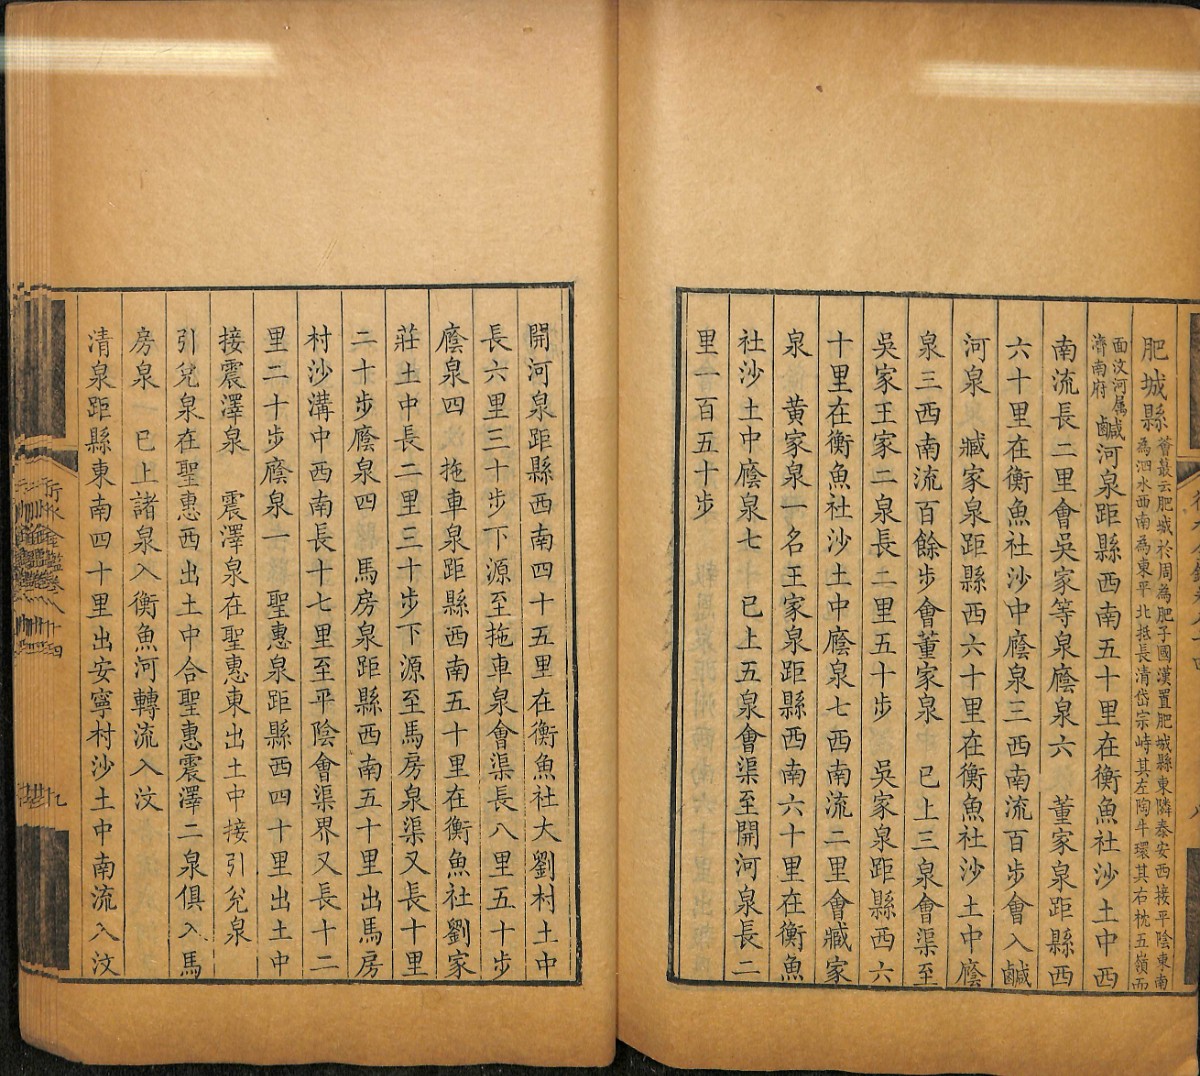 肥城縣薈蕞云肥城於周為肥子國漢置肥城縣東隣泰安西接平陰東南
為泗水西南為東平北抵長清岱宗峙其左陶牛環其右枕五嶺而
面汶河属
濟南府
鹹河泉距縣西南五十里在衡魚社沙土中西
南流長二里會吳家等泉廕泉六　董家泉距縣西
六十里在衡魚社沙中廕泉三西南流百步會入鹹
河泉　臧家泉距縣西六十里在衡魚社沙土中廕
泉三西南流百餘步會董家泉　已上三泉會渠至
吳家王家二泉長二里五十步　吳家泉距縣西六
十里在衡魚社沙土中廕泉七西南流二里會臧家
泉　黄家泉一名王家泉距縣西南六十里在衡魚
社沙土中廕泉七　已上五泉會渠至開河泉長二
里一百五十步
開河泉距縣西南四十五里在衡魚社大劉村土中
長六里三十步下源至拖車泉會渠長八里五十步
廕泉四　拖車泉距縣西南五十里在衡魚社劉家
莊土中長二里三十步下源至馬房泉渠又長十里
二十步廕泉四　馬房泉距縣西南五十里出馬房
村沙溝中西南長十七里至平陰會渠界又長十二
里二十步廕泉一　聖惠泉距縣西四十里出土中
接震澤泉　震澤泉在聖惠東出土中接引兊泉
引兊泉在聖惠西出土中合聖惠震澤二泉俱入馬
房泉　已上諸泉入衡魚河轉流入汶
清泉距縣東南四十里出安寧村沙土中南流入汶
行水金鑑卷八十四
九